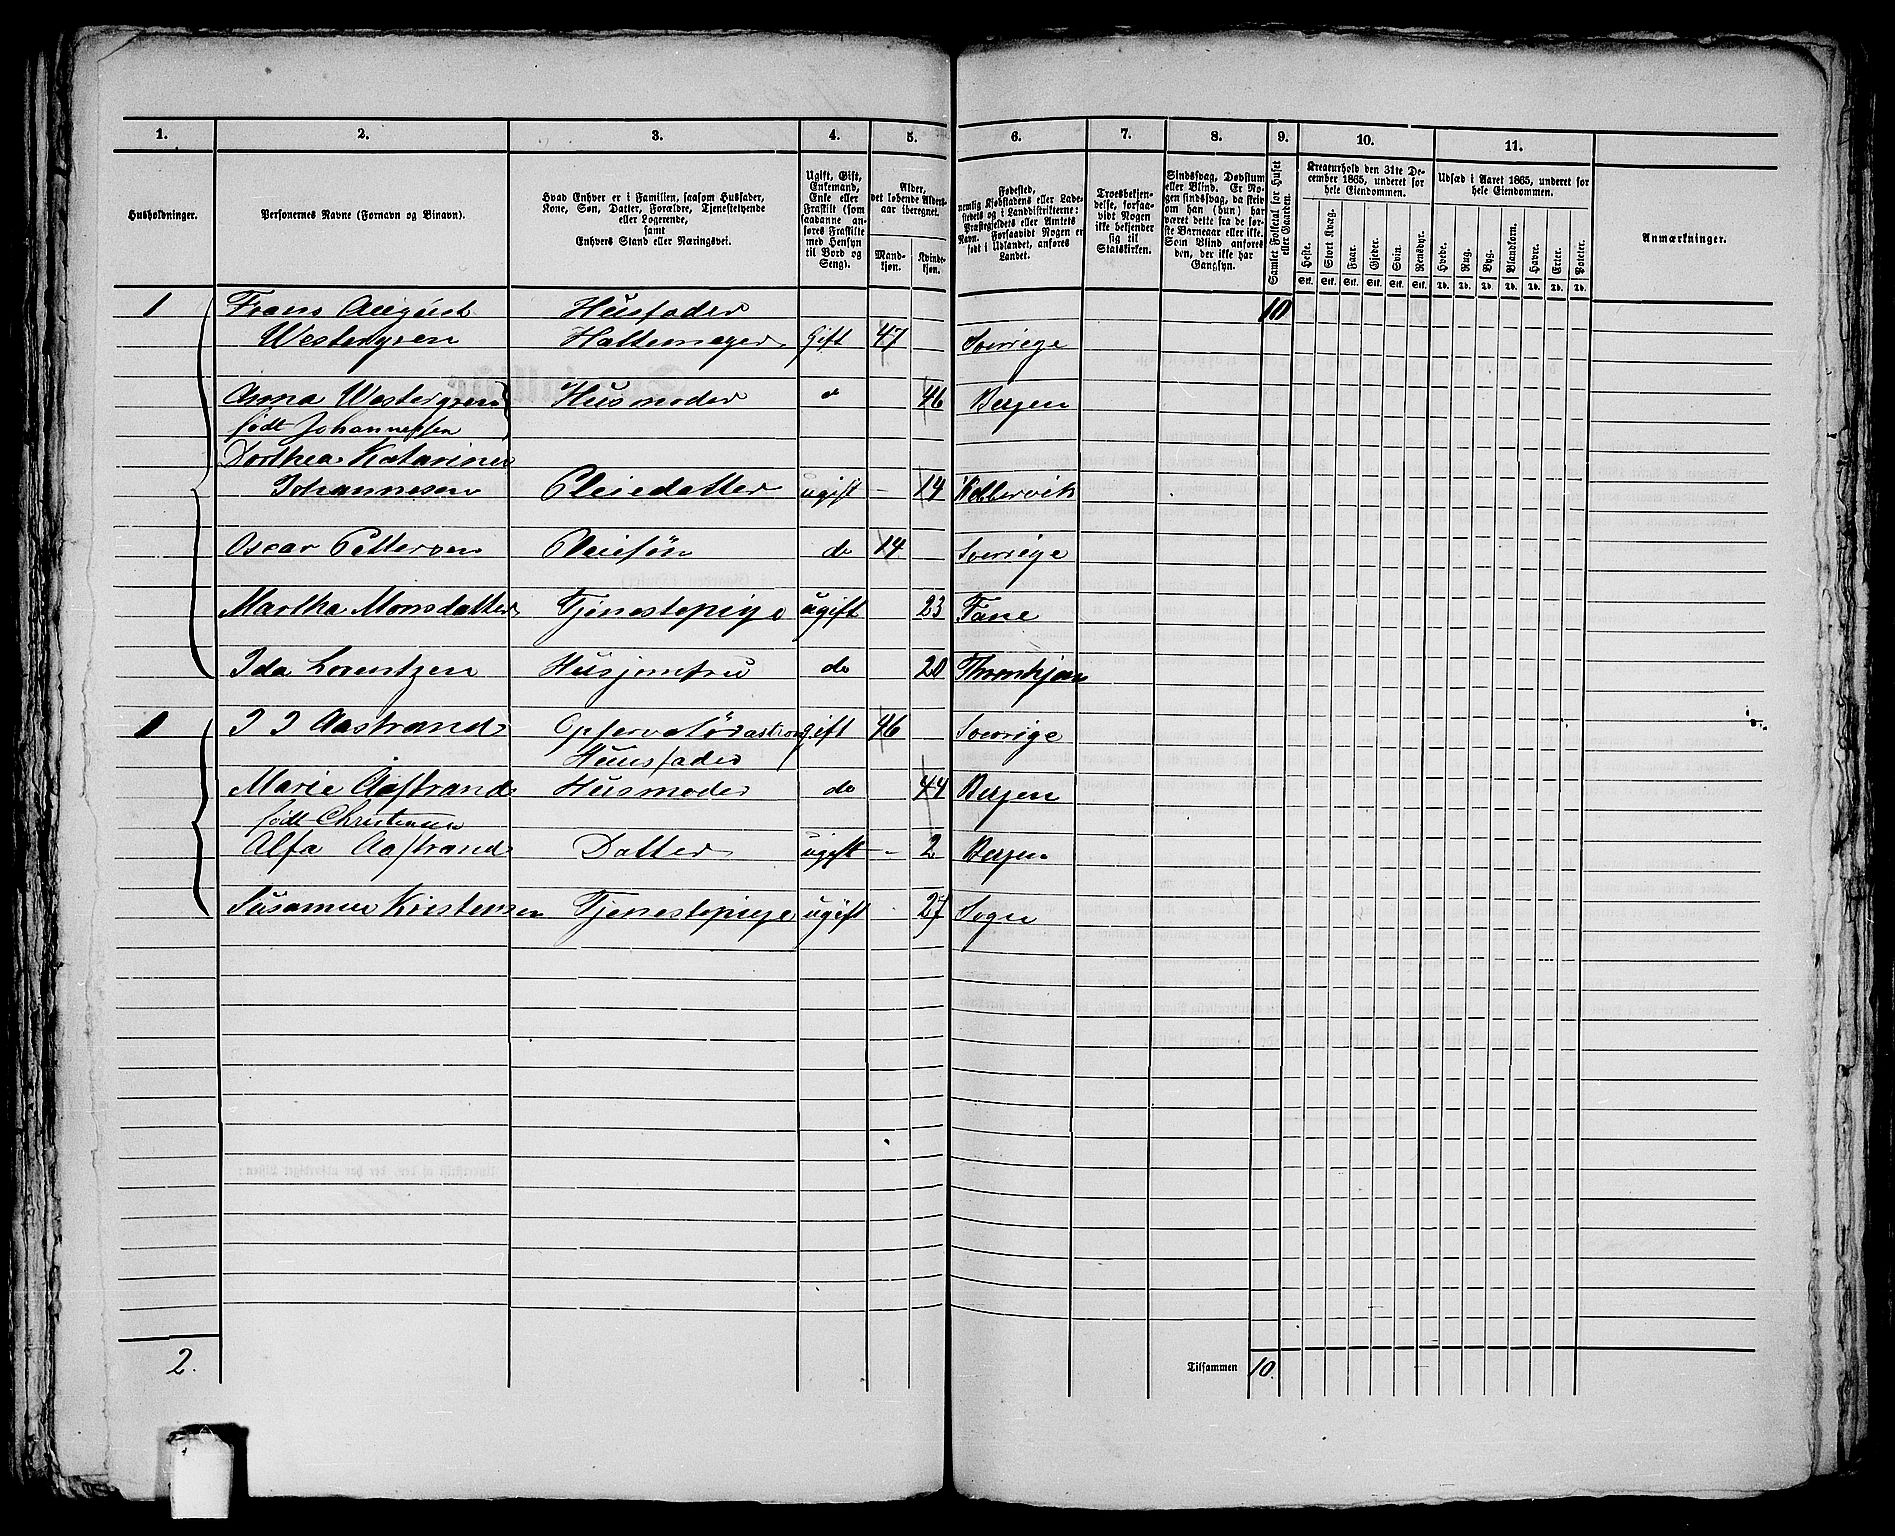 1. 2. 3. 4. 5. 6. 7. 8. 9. 10. 11.
Husholdninger.
Personernes Navne (Fornavn og Binavn).
Hvad Enhver er i Familien, saasom Husfader,
Kone, Søn, Datter, Forældre, Tjenestetyende
eller Logerende,
samt
Enhvers Stand eller Næringsvei.
Ugift, Gift,
Enkemand,
Enke eller
Fraskilt (som
saadanne an-
føres Fraskilte
med Hensyn
til Bord og
Seng).
Alder,
det løbende Alders-
aar iberegnet.
Mand-
kjøn.
Kvinde-
kjøn.
Fødested,
nemlig Kjøbstadens eller Lade-
stedets og i Landdistrikterne:
Præstegjeldets eller Amtets
Navn. Forsaavidt Nogen er
født i Udlandet, anføres
Landet.
Troesbekjen-
delse, forsaa-
vidt Nogen
ikke bekjender
sig til
Statskirken.
Sindssvag, Døvstum
eller Blind. Er No-
gen sindssvag, da skriv
om han (hun) har
været dette fra de før-
ste Barneaar eller ikke.
Som Blind anføres
den, der ikke har
Gangsyn.
Samlet Folketal for Huset
eller Gaarden.
Kreaturhold den 31te De-
cember 1865, underet for
hele Eiendommen.
Heste. Stort Kvæg. Faar. Gjeder. Svin. Rensdyr.
Stk. Stk. Stk. Stk. Stk. Stk.
Udsæd i Aaret 1865, underet for
hele Eiendommen.
Hvede. Rug. Byg. Blandkorn. Havre. Erter. Poteter.
Td. Td. Td. Td. Td. Td. Td.
Anmærkninger.
1 Frans August Husfader 10
Westergren Gift 47 Sverrige
Anna Westergren Husmoder d 46 Bergen
født Johannessen
Dorthea Katarine
Johannesen Pleiedatter ugift - 14
Oscar Pettersen Pleiesøn do 14 Sverrige
Martha Monsdatter Tjenestepige ugift 23 Fane
Ida Lorentzen Husjomfru do 20 Thronhjem
1 I I Aastrand gift 46 Sverrige
Huusfader
Marie Aastrand Husmoder do 44 Bergen
født Christensen
Alfa Aastrand Datter ugift - 2 Bergen
Susanne Kristensen Tjenestepige ugift 27 Sogn
2.
Tilsammen 10.